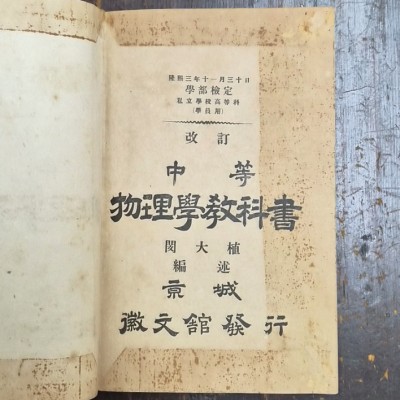 隆熙三年十一月三十日
學部檢定
私立學校高等科
(學員用)
改訂
中等
物理學敎科書
閔大植
編述
京城
徽文館發行